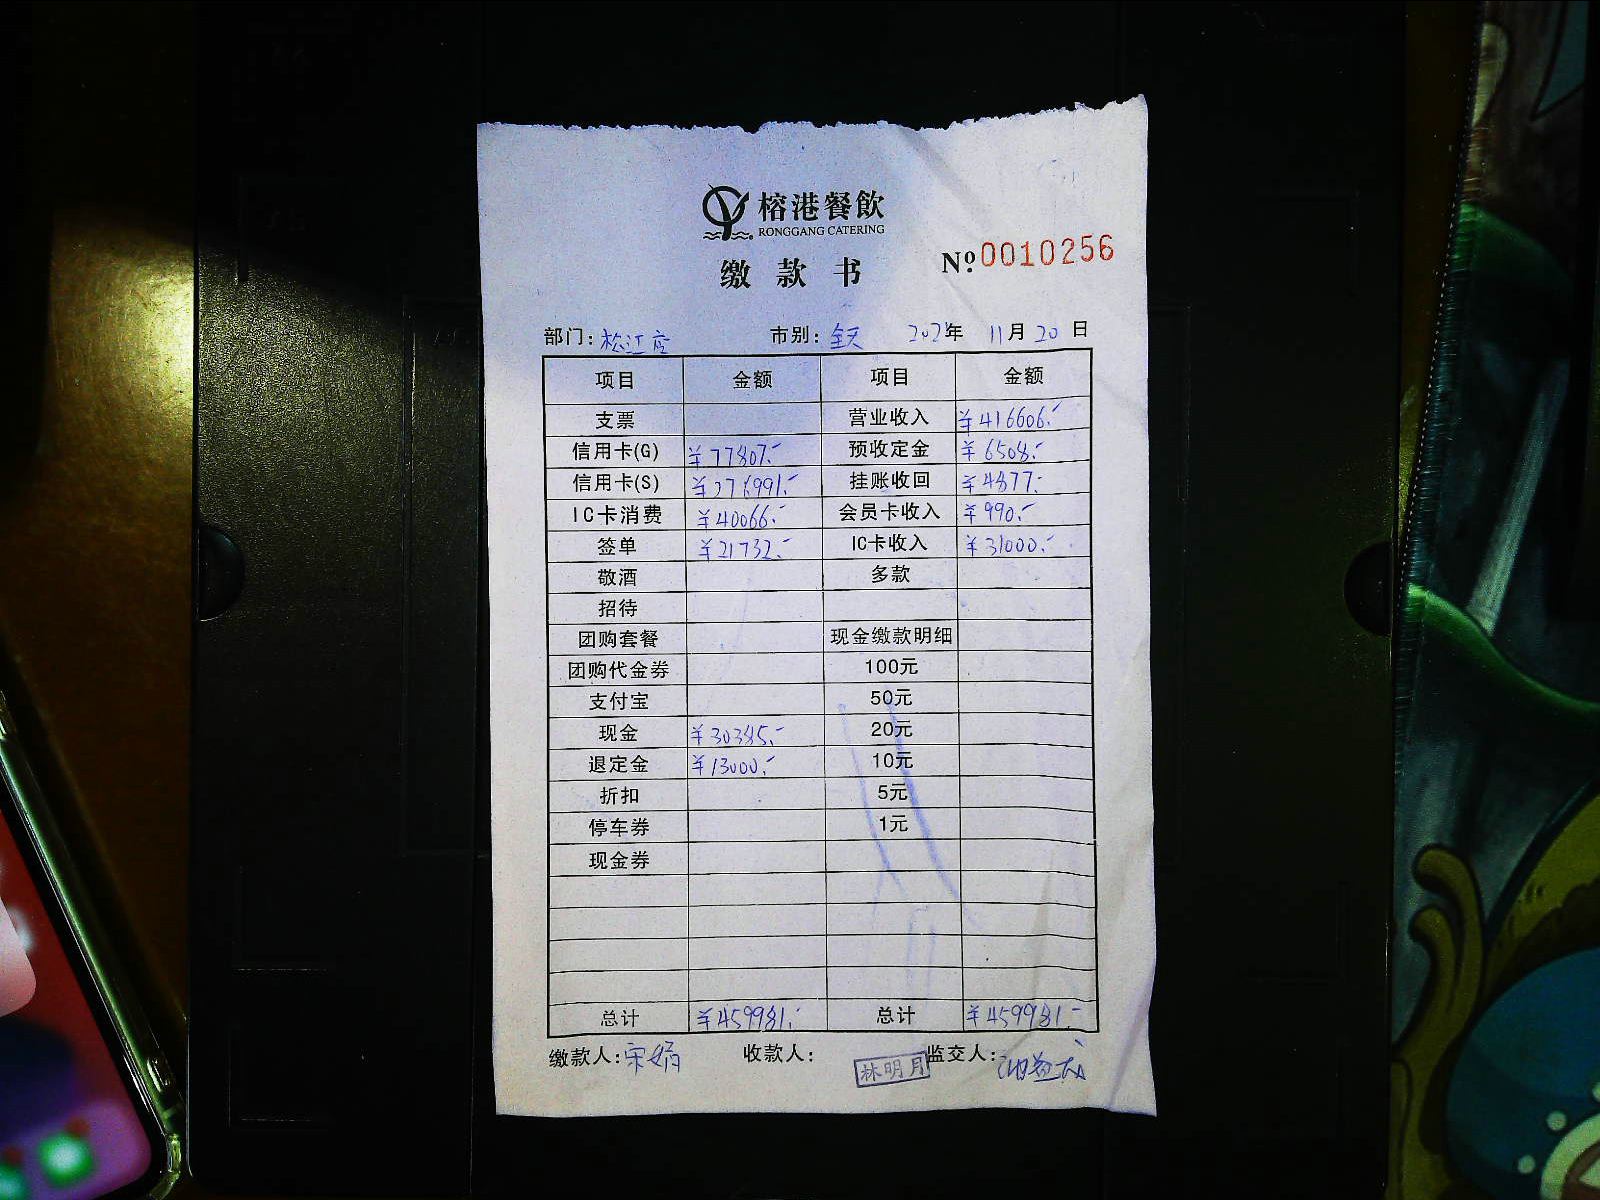 榕港餐飲
RONGGANG CATERING
缴款书 №0010256
部门：松江店 市别：全天 年 11月20日
项目 金额 项目 金额
支票 营业收入 ¥416606.-
信用卡(G) ¥77807.- 预收定金 ¥6508.-
信用卡(S) ¥276991.- 挂账收回 ¥4877.-
IC卡消费 ¥40066.- 会员卡收入 ¥990.-
签单 ¥21732.- IC卡收入 ¥31000.-
敬酒 多款
招待
团购套餐 现金缴款明细
团购代金券 100元
支付宝 50元
现金 ¥30385.- 20元
退定金 ¥13000.- 10元
折扣 5元
停车券 1元
现金券
总计 ¥459981.- 总计 ¥459981.-
缴款人：宋娟 收款人： 林明月 监交人：